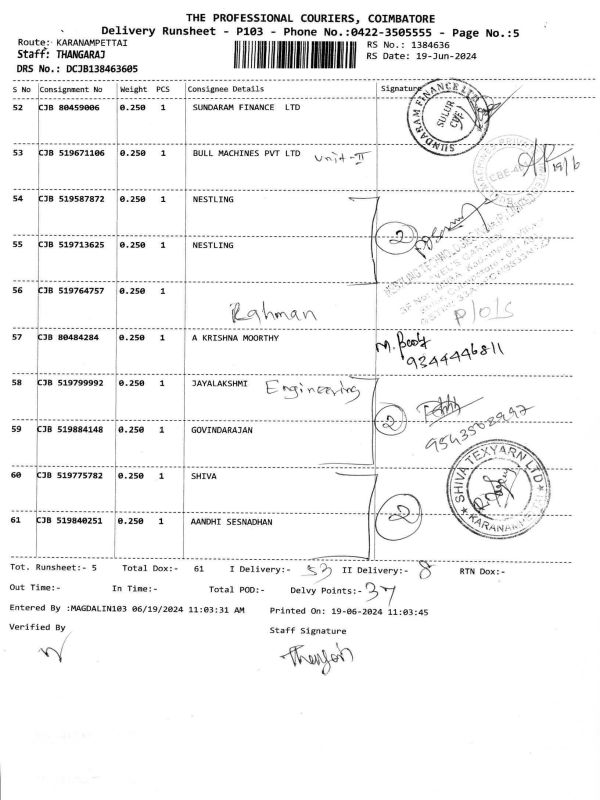 THE PROFESSIONAL COURIERS, COIMBATORE
Delivery Runsheet - P103 - Phone No.:0422-3505555 - Page No.:5
Route: KARANAMPETTAI
RS No.: 1384636
Staff: THANGARAJ
RS Date: 19-Jun-2024
DRS No.: DCJB138463605
S No Consignment No Weight PCS Consignee Details Signature
52 CJB 80459006 0.250 1 SUNDARAM FINANCE LTD
SUNDARAM FINANCE LTD
SULUR
CBE
53 CJB 519671106 0.250 1 BULL MACHINES PVT LTD Unit-II
19/6
54 CJB 519587872 0.250 1 NESTLING
2
55 CJB 519713625 0.250 1 NESTLING
56 CJB 519764757 0.250 1
Rahman P/O/S
57 CJB 80484284 0.250 1 A KRISHNA MOORTHY
9344446811
58 CJB 519799992 0.250 1 JAYALAKSHMI Engineering
2
59 CJB 519884148 0.250 1 GOVINDARAJAN
60 CJB 519775782 0.250 1 SHIVA
SHIVA TEXYARN LTD
61 CJB 519840251 0.250 1 AANDHI SESNADHAN
2
Tot. Runsheet:- 5 Total Dox:- 61 I Delivery:- 53 II Delivery:- 8 RTN Dox:-
Out Time:- In Time:- Total POD:- Delvy Points:- 37
Entered By :MAGDALIN103 06/19/2024 11:03:31 AM Printed On: 19-06-2024 11:03:45
Verified By
Staff Signature